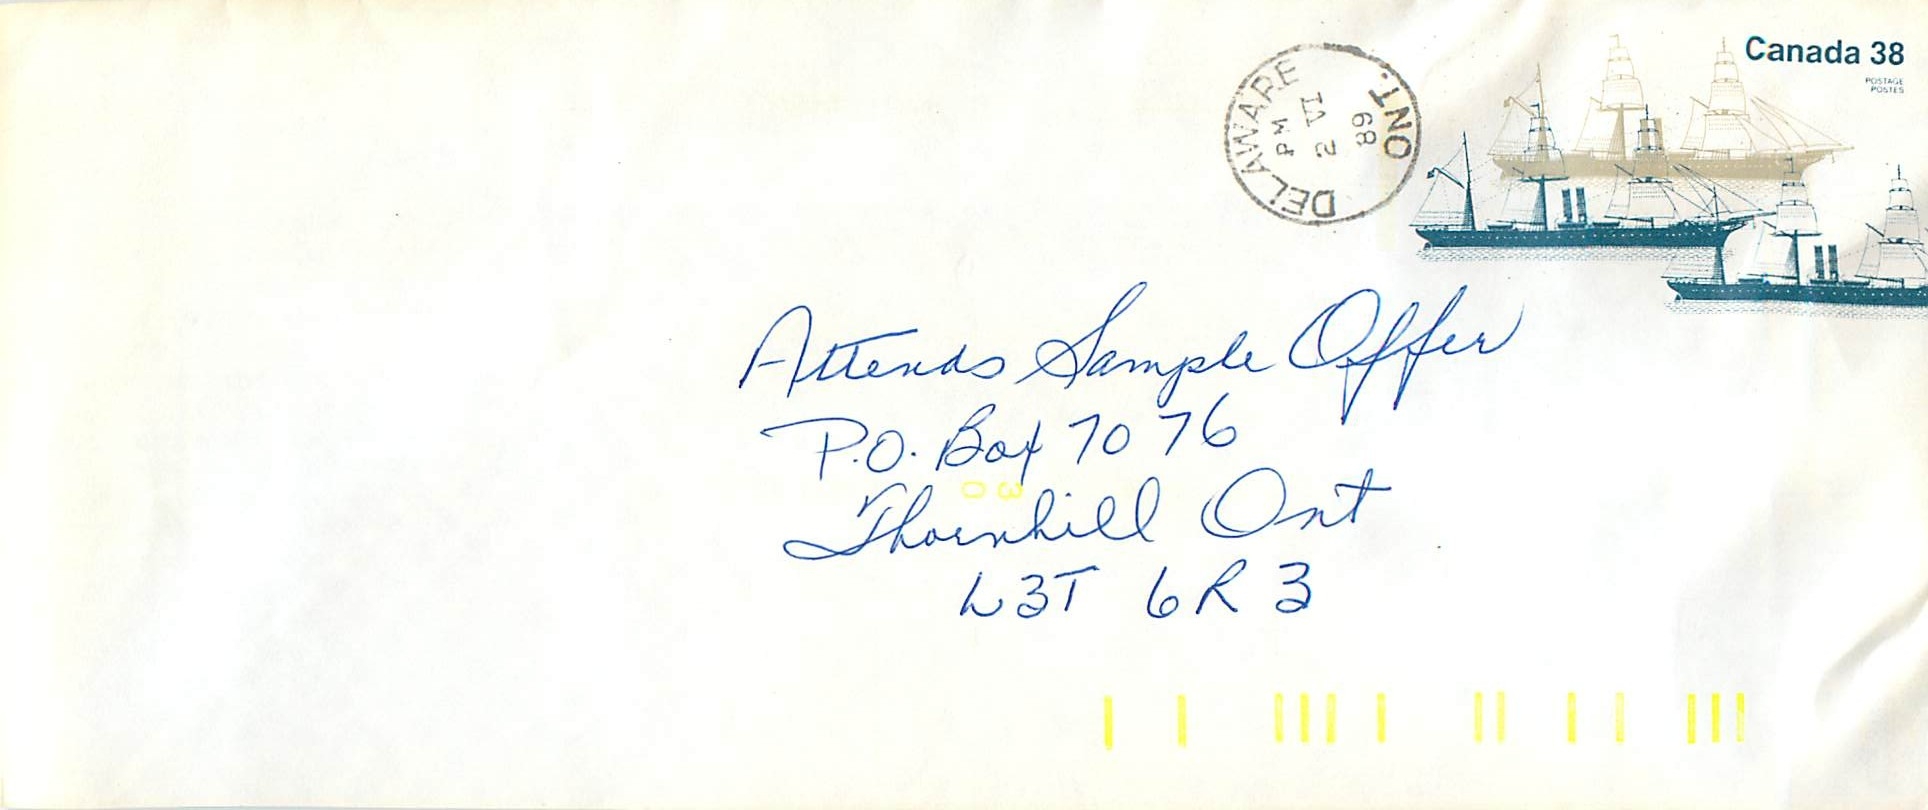 Canada 38
POSTAGE
POSTES
DELAWARE ONT.
PM
2 VI
89
Attends Sample Offer
P.O. Box 7076
Thornhill Ont
L3T 6R3
3
0